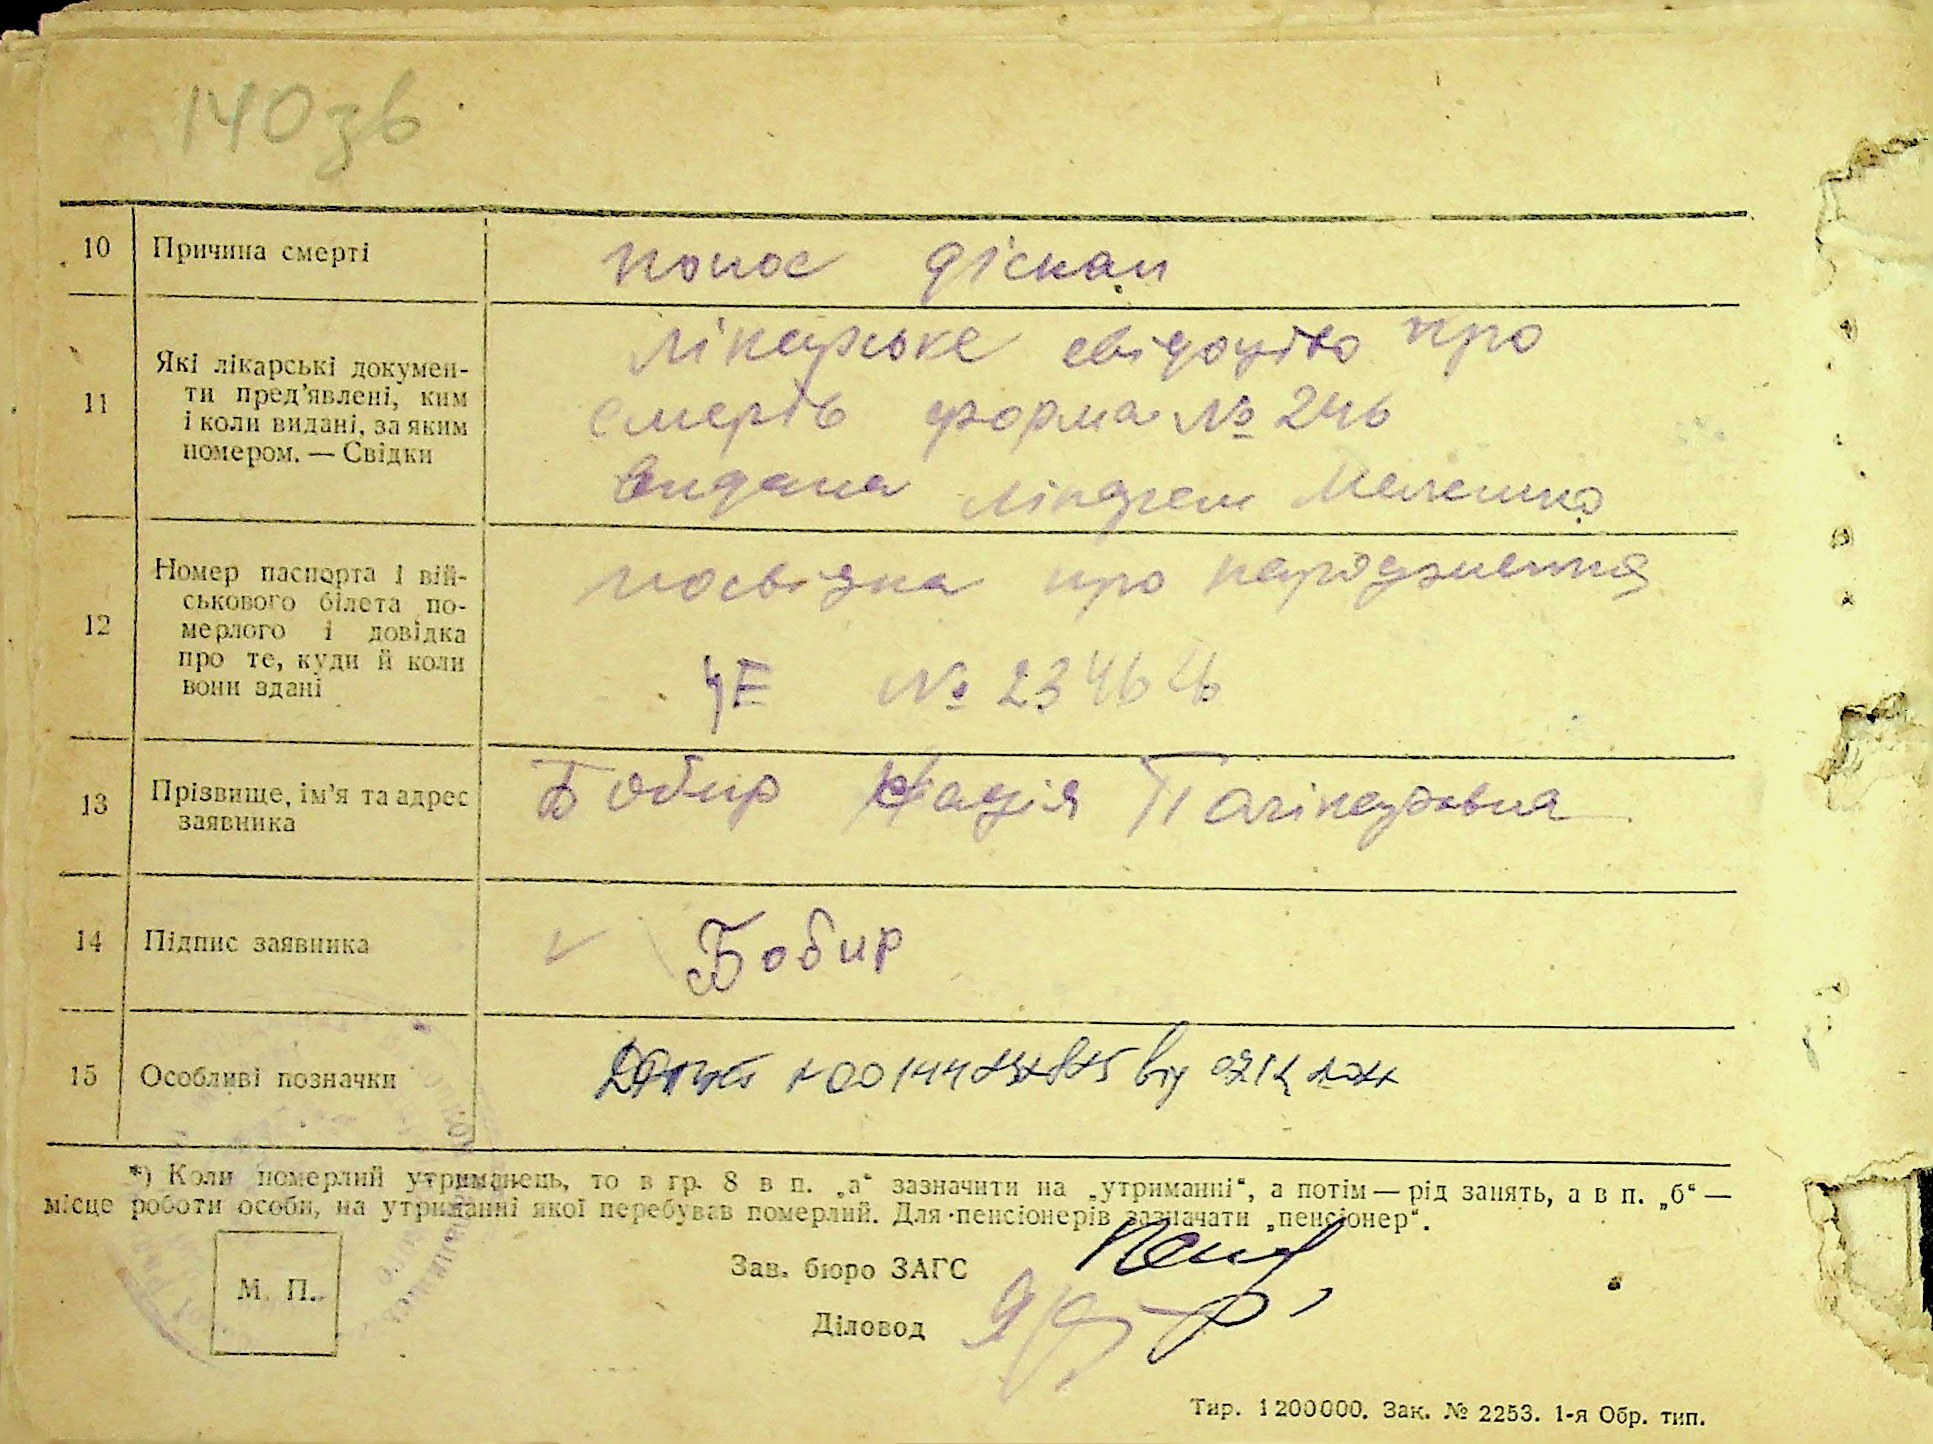 140 зв
10 Причина смерті понос
11 Які лікарські докумен-
ти пред'явлені, ким
і коли видані, за яким
номером. — Свідки
лікарське свідоцтво про
смерть форма № 246
видана лікарем
12 Номер паспорта і вій-
ськового білета по-
мерлого і довідка
про те, куди й коли
вони здані
посвідка про народження
№ 23464
13 Прізвище, ім'я та адрес
заявника
Бобир Надія
14 Підпис заявника Бобир
15 Особливі позначки
*) Коли померлий утриманець, то в гр. 8 в п. „а“ зазначити на „утриманні“, а потім — рід занять, а в п. „б“ —
місце роботи особи, на утриманні якої перебував померлий. Для пенсіонерів зазначати „пенсіонер“.
М. П.
Зав. бюро ЗАГС
Діловод
Тир. 1200000. Зак. № 2253. 1-я Обр. тип.